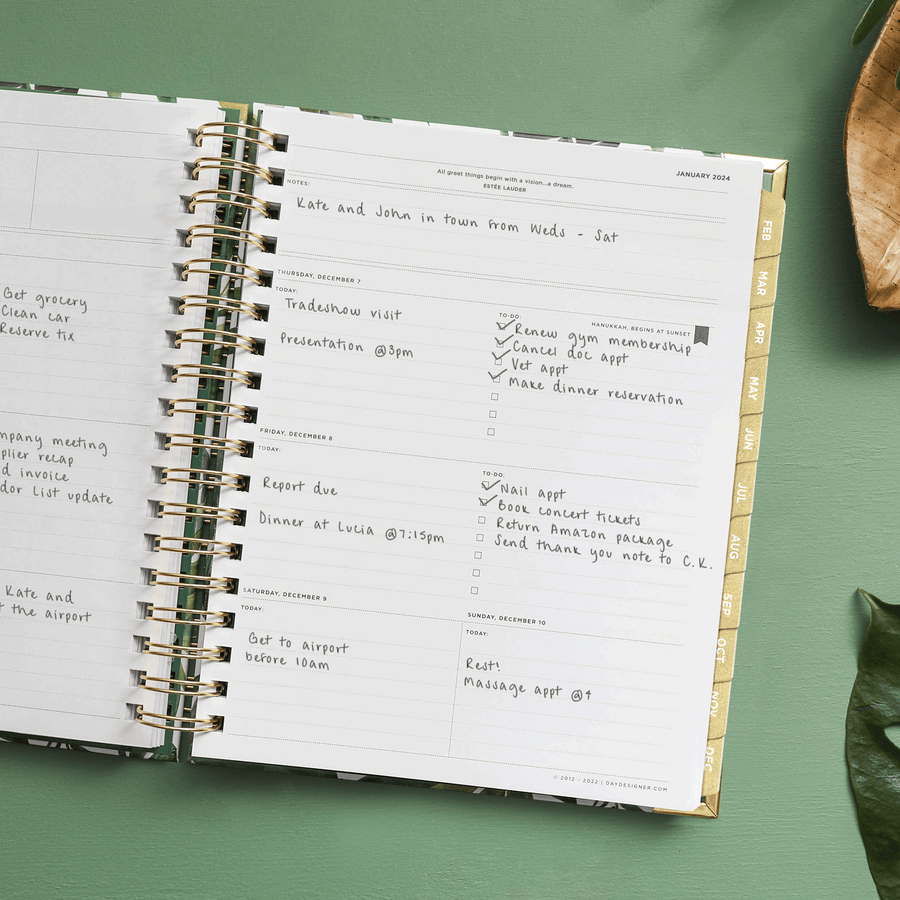 Get grocery
Clean car
Reserve tix
meeting
recap
invoice
List update
Kate and
the airport
JANUARY 2024
All great things begin with a vision...a dream.
ESTÉE LAUDER
NOTES:
Kate and John in town from Weds - Sat
THURSDAY, DECEMBER 7
TODAY:
Tradeshow visit
Presentation @3pm
TO-DO:
HANUKKAH, BEGINS AT SUNSET
Renew gym membership
Cancel doc appt
Vet appt
Make dinner reservation
FRIDAY, DECEMBER 8
TODAY:
Report due
Dinner at Lucia @7:15pm
TO-DO:
Nail appt
Book concert tickets
Return Amazon package
Send thank you note to C.K.
SATURDAY, DECEMBER 9
TODAY:
Get to airport
before 10am
SUNDAY, DECEMBER 10
TODAY:
Rest!
Massage appt @4
© 2012 - 2022 | DAYDESIGNER.COM
FEB
MAR
APR
MAY
JUN
JUL
AUG
SEP
OCT
NOV
DEC